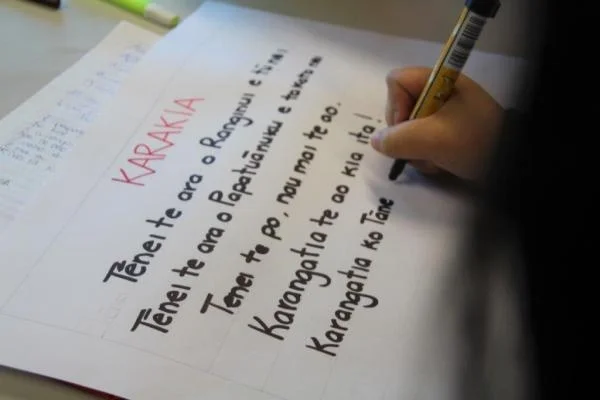 KARAKIA
Tēnei te ara o Ranginui e tū nei
Tēnei te ara o Papatūānuku e takoto nei
Tenei te po, nau mai te ao.
Karangatia te ao kia ita!
Karangatia ko Tāne